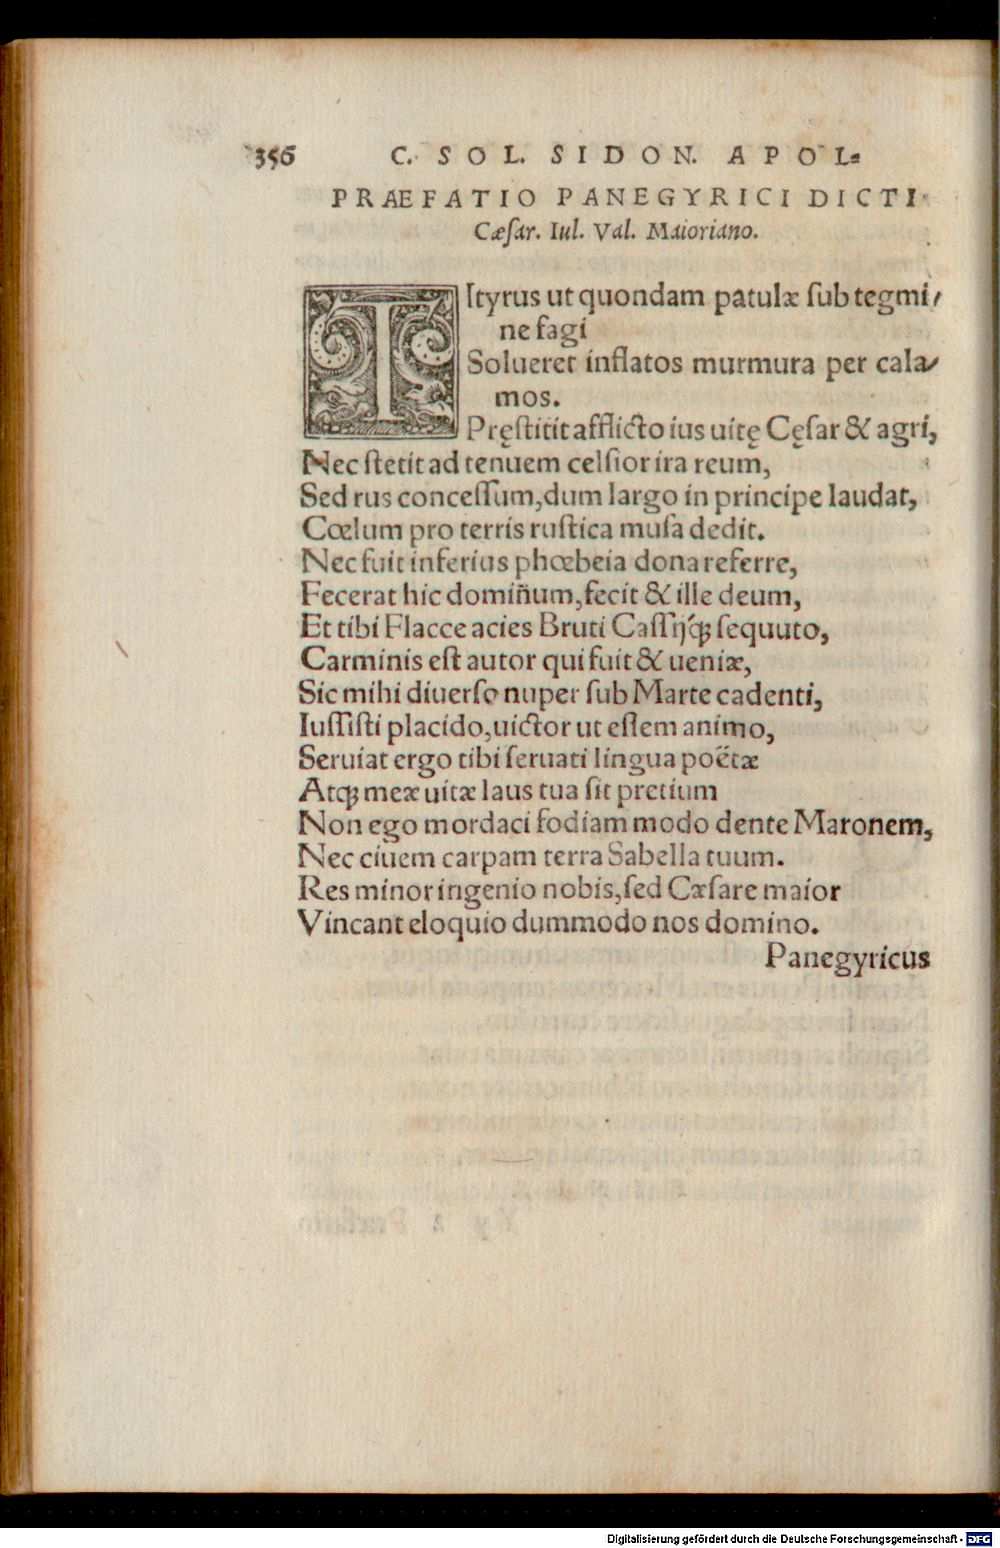 356 C. SOL. SIDON. APOL⸗
PRAEFATIO PANEGYRICI DICTI
Cæſar. Iul. Val. Maioriano.
TItyrus ut quondam patulæ ſub tegmi/
ne fagi
Solueret inflatos murmura per cala/
mos.
Pręſtitit afflicto ius uitę Cęſar & agri,
Nec ſtetit ad tenuem celſior ira reum,
Sed rus conceſſum,dum largo in principe laudat,
Cœlum pro terris ruſtica muſa dedit.
Nec fuit inferius phœbeia dona referre,
Fecerat hic domiñum,fecit & ille deum,
Et tibi Flacce acies Bruti Caſſijq́ꝫ ſequuto,
Carminis eſt autor qui fuit & ueniæ,
Sic mihi diuerſo nuper ſub Marte cadenti,
Iuſſiſti placido,uictor ut eſſem animo,
Seruiat ergo tibi ſeruati lingua poëtæ
Atqꝫ meæ uitæ laus tua ſit pretium
Non ego mordaci fodiam modo dente Maronem,
Nec ciuem carpam terra Sabella tuum.
Res minor ingenio nobis,ſed Cæſare maior
Vincant eloquio dummodo nos domino.
Panegyricus
Digitalisierung gefördert durch die Deutsche Forschungsgemeinschaft - DFG